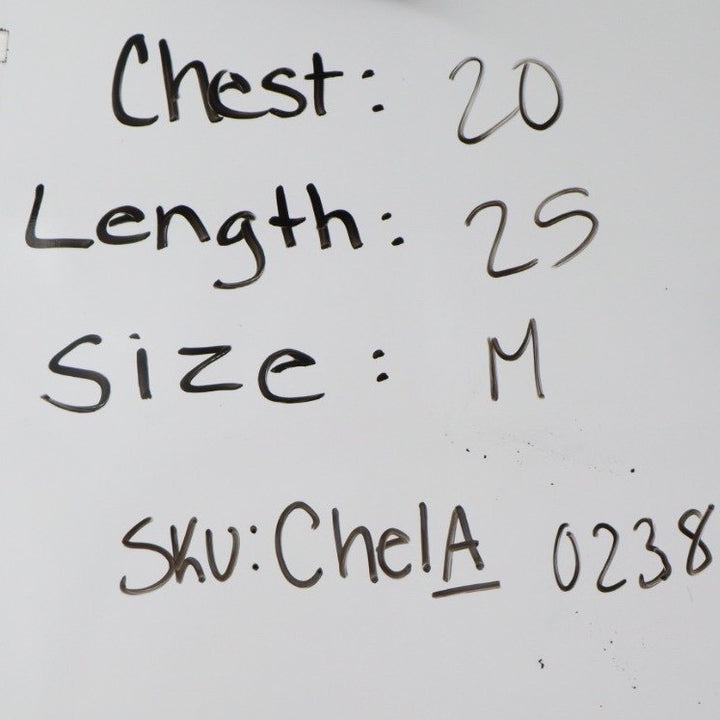 Chest: 20
Length: 25
Size: M
SKU: ChelA 0238